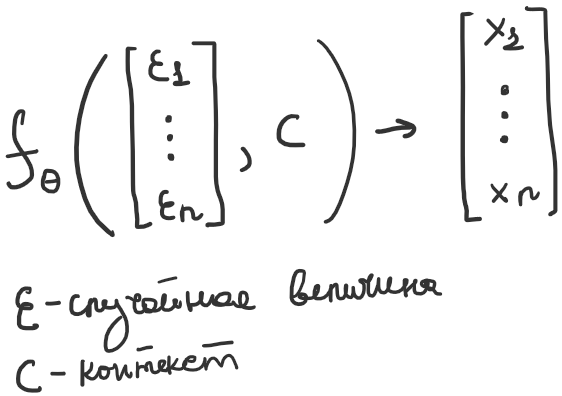 f_θ([ε1 ⋮ εn], C) → [x1 ⋮ xn]
ε - случайная величина
C - контекст